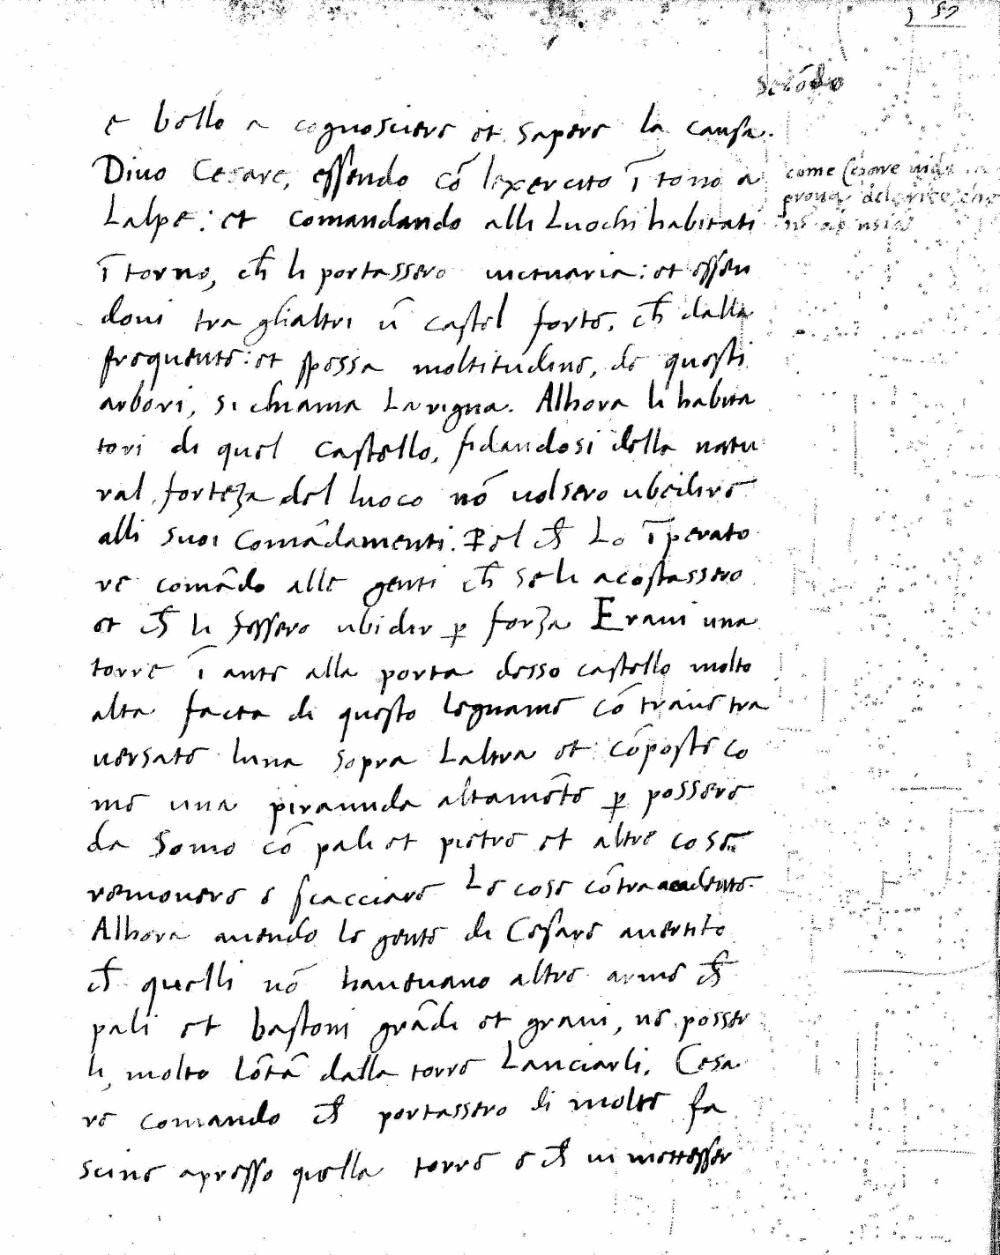 59
Secōdo
e bello a cognosciere et sapere la causa.
Divo Cesare, essendo cō lexercito ī torno a
Lalpe: et comandando alli Luochi habitati
ī torno, ch̄ li portassero victuaria: et essen
dovi tra glialtri ū castel forte, ch̄ dalla
frequente: et spessa moltitudine, de questi
arbori, si chiama Larigna. Alhora li habita
tori di quel castello, fidandosi della natu
ral forteza del luoco nō volsero ubedire
alli suoi comādamenti. Pel ch̄ Lo īperato
re comādo alle genti ch̄ se li acostassero
et ch̄ li fessero ubidir ꝑ forza Eravi una
torre ī ante alla porta desso castello molto
alta facta di questo legname cō trave tra
versate luna sopra Laltra et cōposte co
me una piramida altamēte ꝑ possere
da somo cō pali et pietre et altre cose
removere e scacciare Le cose cōtra
Alhora avendo le gente di Cesare avertito
ch̄ quelli nō havevano altre arme ch̄
pali et bastoni grādi et gravi, ne posser
li, molto lōtā dalla torre Lanciarli. Cesa
re comando ch̄ portassero di molte fa
scine apresso quella torre e ch̄ vi mettesser
come Cesare vide
prova del